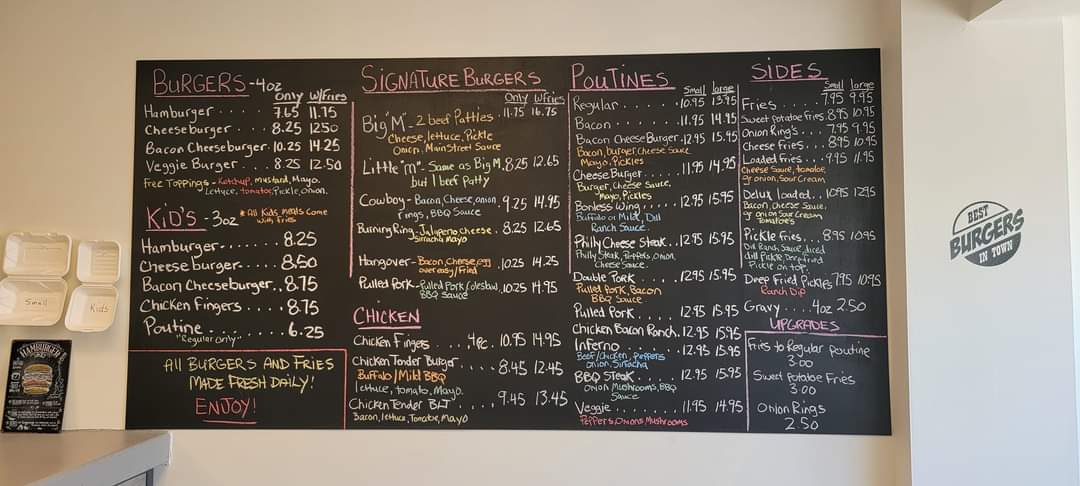 BURGERS - 4oz
Only w/Fries
Hamburger . . . 7.65 11.75
Cheeseburger . . . 8.25 12.50
Bacon Cheeseburger. 10.25 14.25
Veggie Burger . . . 8.25 12.50
Free Toppings - Ketchup, mustard, Mayo,
Lettuce, tomato, Pickle, onion.
KID'S - 3oz
*All Kids meals Come
with fries
Hamburger- . . . . . . 8.25
Cheese burger. . . . . 8.50
Bacon Cheeseburger.. 8.75
Chicken Fingers . . . . 8.75
Poutine . . . . . . . . 6.25
"Regular Only"
All BURGERS AND FRIES
MADE FRESH DAILY!
ENJOY!
SIGNATURE BURGERS
Only w/Fries
Big "M" - 2 beef Patties . 11.75 16.75
Cheese, lettuce, Pickle
Onion, Main Street Sauce
Little "m" - Same as Big M. 8.25 12.65
but 1 beef patty
Cowboy - Bacon, Cheese, onion, 9.25 14.95
rings, BBQ Sauce
Burning Ring - Jalapeno, cheese, 8.25 12.65
Siracha Mayo
Hangover - Bacon, Cheese, egg 10.25 14.25
over easy/fried
Pulled Pork - Pulled Pork, Coleslaw, 10.25 14.95
BBQ Sauce
CHICKEN
Chicken Fingers . . . 4pc. 10.95 14.95
Chicken Tender Burger . . . . 8.45 12.45
Buffalo/Mild BBQ
lettuce, tomato, Mayo.
Chicken Tender BLT . . . . 9.45 13.45
Bacon, lettuce, Tomatoe, Mayo
POUTINES
Small large
Regular . . . . . . 10.95 13.95
Bacon . . . . . . . 11.95 14.95
Bacon Cheese Burger. 12.95 15.95
Bacon, burger, Cheese Sauce
Mayo, Pickles
Cheese Burger . . . . 11.95 14.95
Burger, Cheese Sauce,
Mayo, Pickles
Bonless Wing . . . 12.95 15.95
Buffalo or Mild, Dill
Ranch Sauce.
Philly Cheese Steak . . 12.95 15.95
Philly Steak, Peppers, Onion,
Cheese Sauce.
Double Pork . . . . 12.95 15.95
Pulled Pork, Bacon
BBQ Sauce
Pulled Pork . . . . . 12.95 15.95
Chicken Bacon Ranch. 12.95 15.95
Inferno . . . . . . 12.95 15.95
Beef/Chicken, Peppers
Onion, Siracha
BBQ Steak . . . . . 12.95 15.95
Onion, Mushrooms, BBQ
Sauce
Veggie . . . . . . 11.95 14.95
Peppers, Onions, Mushrooms
SIDES
Small large
Fries . . . . 7.95 9.95
Sweet Potatoe Fries. 8.95 10.95
Onion Ring's . . . 7.95 9.95
Cheese Fries . . . 8.95 10.95
Loaded Fries . . . 9.95 11.95
Cheese Sauce, tomatoe,
gr onion, Sour Cream
Delux loaded . . 10.95 12.95
Bacon, Cheese Sauce,
gr onion Sour Cream
Tomatoes
Pickle Fries. . . 8.95 10.95
Dill Ranch Sauce, diced
dill Pickle, Deep fried
Pickle on top.
Deep Fried Pickles 7.95 10.95
Ranch Dip
Gravy . . . . 4oz 2.50
UPGRADES
Fries to Regular poutine
3.00
Sweet Potatoe Fries
3.00
Onion Rings
2.50
BEST
BURGERS
IN TOWN
Small
Kids
HAMBURGER